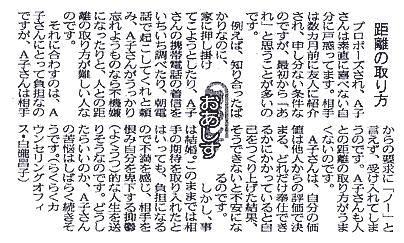 距離の取り方
プロポーズされ、A子
さんは素直に喜べない自
分に戸惑ってます。相手
は数カ月前に友人に紹介
され、申し分ない条件な
のですが、最初から「あ
れ」と思うことが多いの
です。
例えば、知り合ったば
かりなのに、
家に押し掛け
てこようとしたり、A子
さんの携帯電話の着信を
いちいち調べたり、朝電
話で起こしてくれと頼
み、A子さんがうっかり
忘れようものなら不機嫌
になったりと、人との距
離の取り方が難しい人な
のです。
それに合わすのは、A
子さんにとって負担なの
ですが、A子さんは相手
からの要求に「ノー」と
言えず、受け入れてしま
うのです。A子さんも人
との距離の取り方がうま
くないのです。
A子さんは、自分の価
値は他人からの評価で決
まる、どれだけ奉仕でき
るかにかかっていると自
己をつくり上げた結果、
そうできないと不安にな
るのです。
しかし、事
は結婚。このままでは相
手の期待を取り入れたと
はいっても、負担になる
ので不満を感じ、相手を
恨み自分を卑下する抑鬱
(よくうつ)的な人生を送
りそうなのです。どうし
たらいいのか、A子さん
の苦悩はしばらく続きそ
うです。(らくらくカ
ウンセリングオフィ
ス・白龍昌子)
おあしす